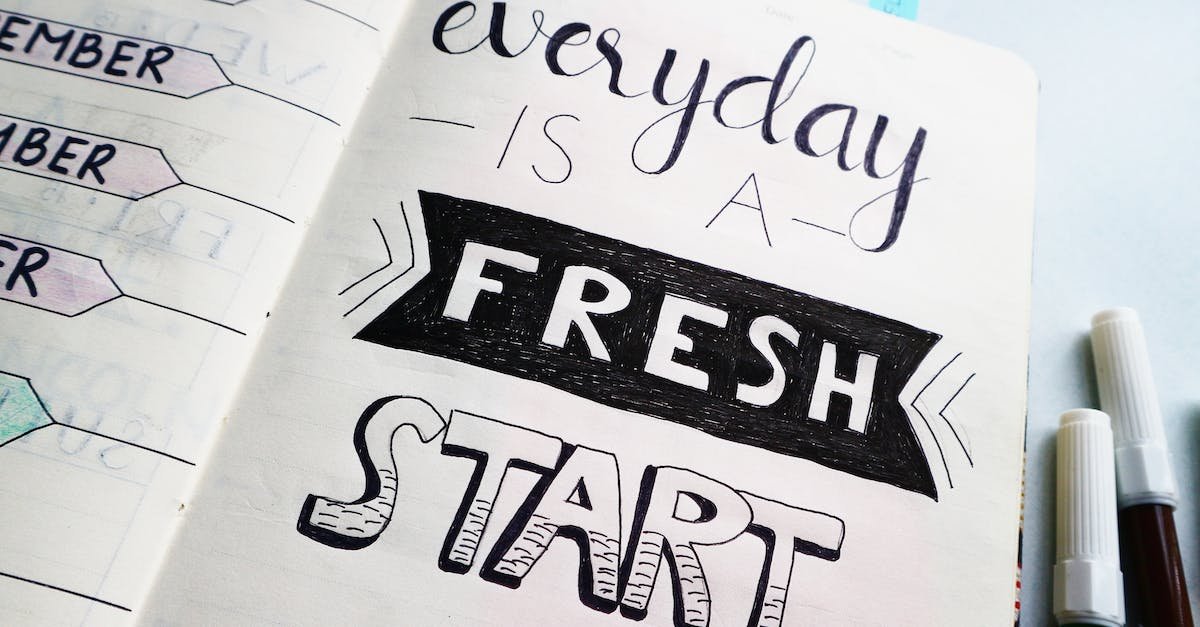 EMBER
MBER
ER
everyday
– IS A –
FRESH
START